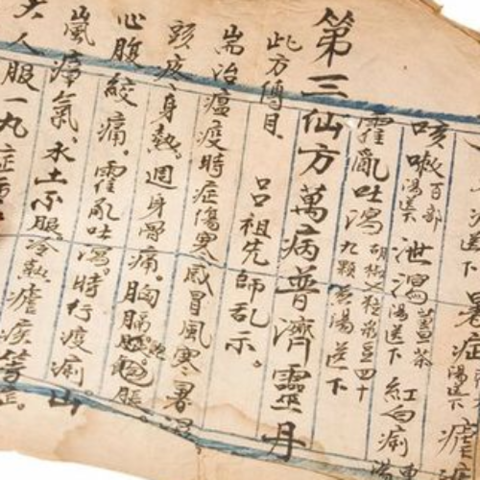 送下 暑症 湯送下 瘧疾
咳嗽 百部湯送下 泄瀉 薑茶湯送下 紅白痢
霍亂吐瀉 胡椒 粒 豆四十九顆 湯送下
第三仙方萬病普濟靈丹
此方傳自 呂祖先師乩示。
耑治瘟疫時症傷寒感冒風寒暑
頭疼身熱。週身骨痛。胸膈飽脹
心腹絞痛。霍亂吐瀉。時行疫痢。山
嵐瘴氣。水土不服冷熱瘧疾等症。
大人服一丸症重